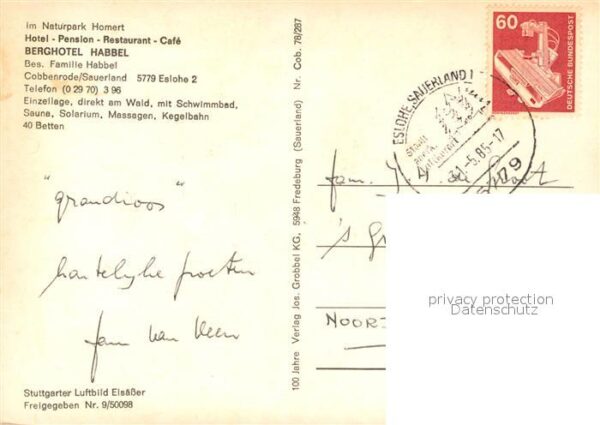 Im Naturpark Homert
Hotel - Pension - Restaurant - Café
BERGHOTEL HABBEL
Bes. Familie Habbel
Cobbenrode/Sauerland 5779 Eslohe 2
Telefon (0 29 70) 3 96
Einzellage, direkt am Wald, mit Schwimmbad,
Sauna, Solarium, Massagen, Kegelbahn
40 Betten
"grandioos"
hartelijke groeten
fam van Veen
Stuttgarter Luftbild Elsäßer
Freigegeben Nr. 9/50098
100 Jahre Verlag Jos. Grobbel KG, 5948 Fredeburg (Sauerland) Nr. Cob. 78/287
60
DEUTSCHE BUNDESPOST
ESLOHE, SAUERLAND 1
.-5.85-17
fam.
's Gr
NOOR
privacy protection
Datenschutz